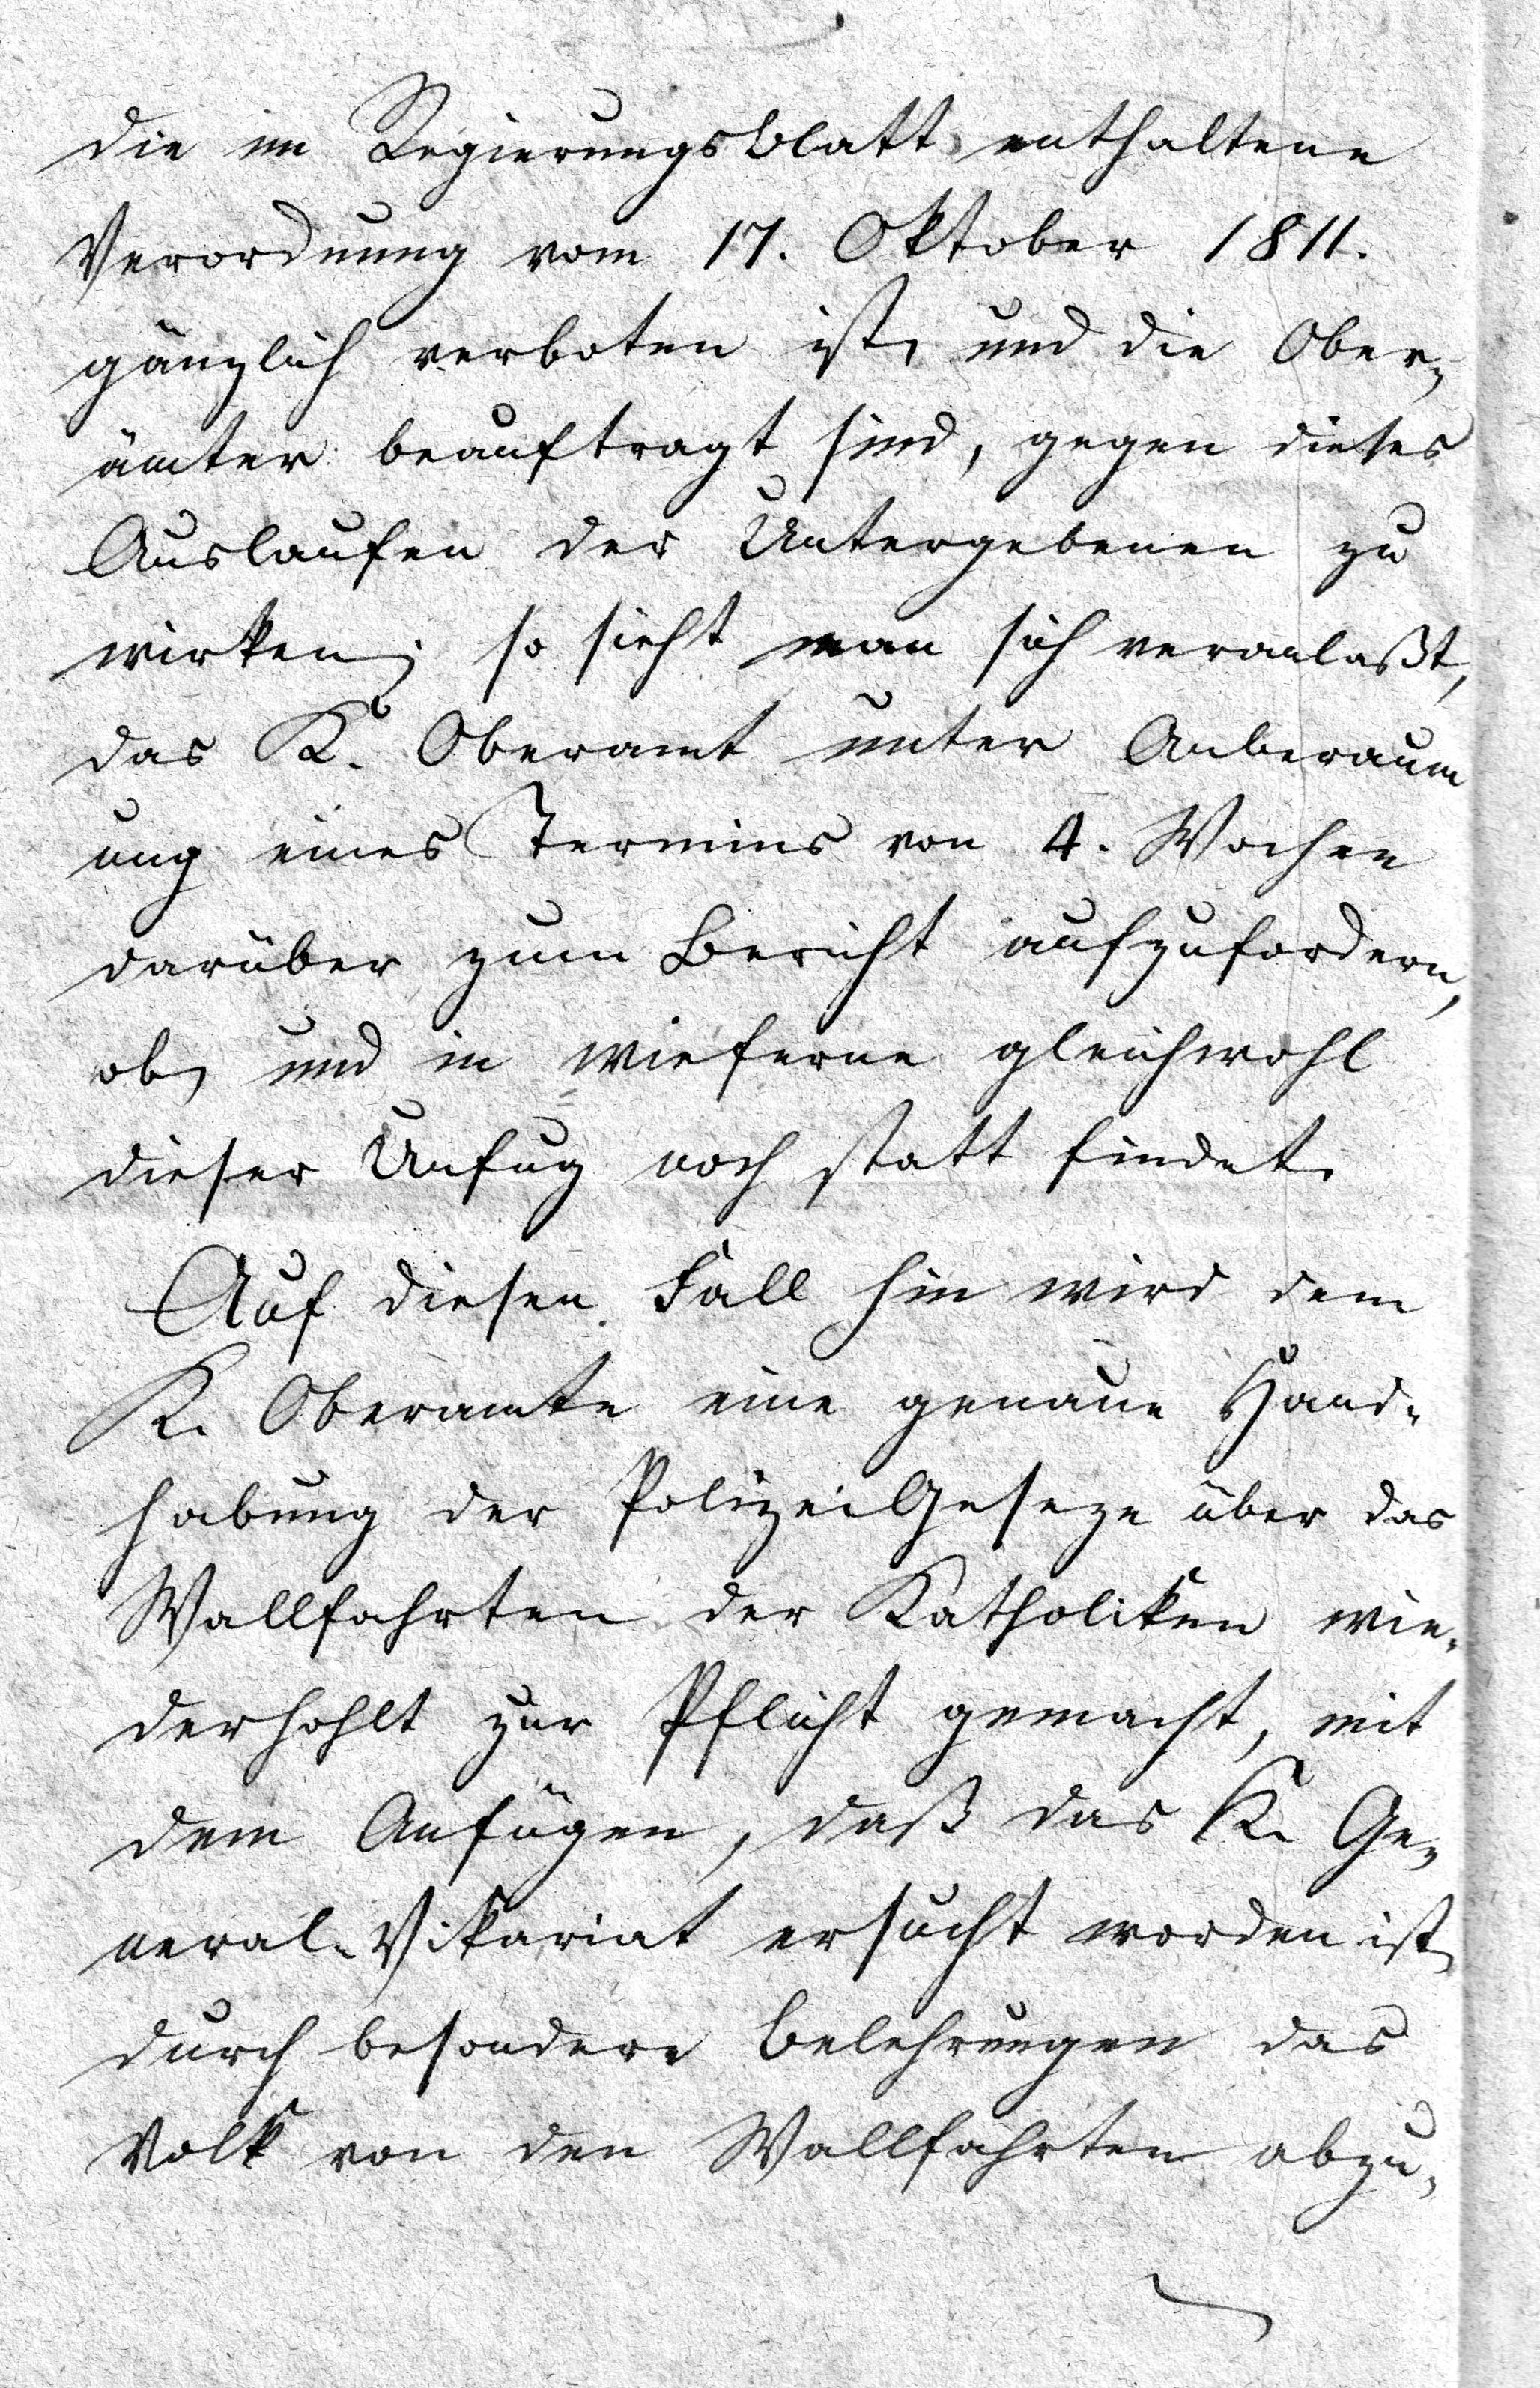 die im Regierungsblatt enthaltene
Verordnung vom 17. Oktober 1811.
gänzlich verboten ist, und die Ober-
ämter beauftragt sind, gegen dieses
Auslaufen der Untergebenen zu
wirken; so sieht man sich veranlaßt,
das K. Oberamt unter Anberaum
ung eines Termins von 4. Wochen
darüber zum Bericht aufzufordern,
ob, und in wieferne gleichwohl
dieser Unfug noch statt findet.
Auf diesen Fall hin wird dem
K. Oberamte eine genaue Hand-
habung der PolizeiGeseze über das
Wallfahrten der Katholiken wie-
derhohlt zur Pflicht gemacht, mit
dem Anfügen, daß das K. Ge-
neral-Vikariat ersucht worden ist,
durch besondere Belehrungen das
Volk von den Wallfahrten abzu-